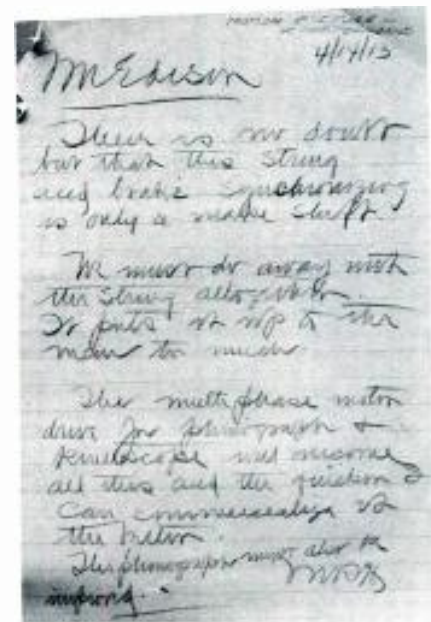 MOTION PICTURE
4/14/13
Mr Edison
There is no doubt
but that this string
and brake synchronizing
is only a make shift.
We must do away with
the string altogether.
It puts it up to the
man too much.
The multiphase motor
drive for phonograph &
Kinetoscope will
all this and the question &
can commercialize it
the
The phonograph must also be
improved.